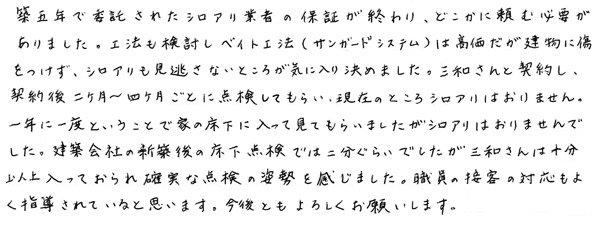 築五年で委託されたシロアリ業者の保証が終わり、どこかに頼む必要が
ありました。工法も検討しベイト工法(サンガードシステム)は高価だが建物に傷
をつけず、シロアリも見逃さないところが気に入り決めました。三和さんと契約し、
契約後二ケ月〜四ケ月ごとに点検してもらい、現在のところシロアリはおりません。
一年に一度ということで家の床下に入って見てもらいましたがシロアリはおりませんで
した。建築会社の新築後の床下点検では二分ぐらいでしたが三和さんは十分
以上入っておられ確実な点検の姿勢を感じました。職員の接客の対応もよ
く指導されていると思います。今後ともよろしくお願いします。